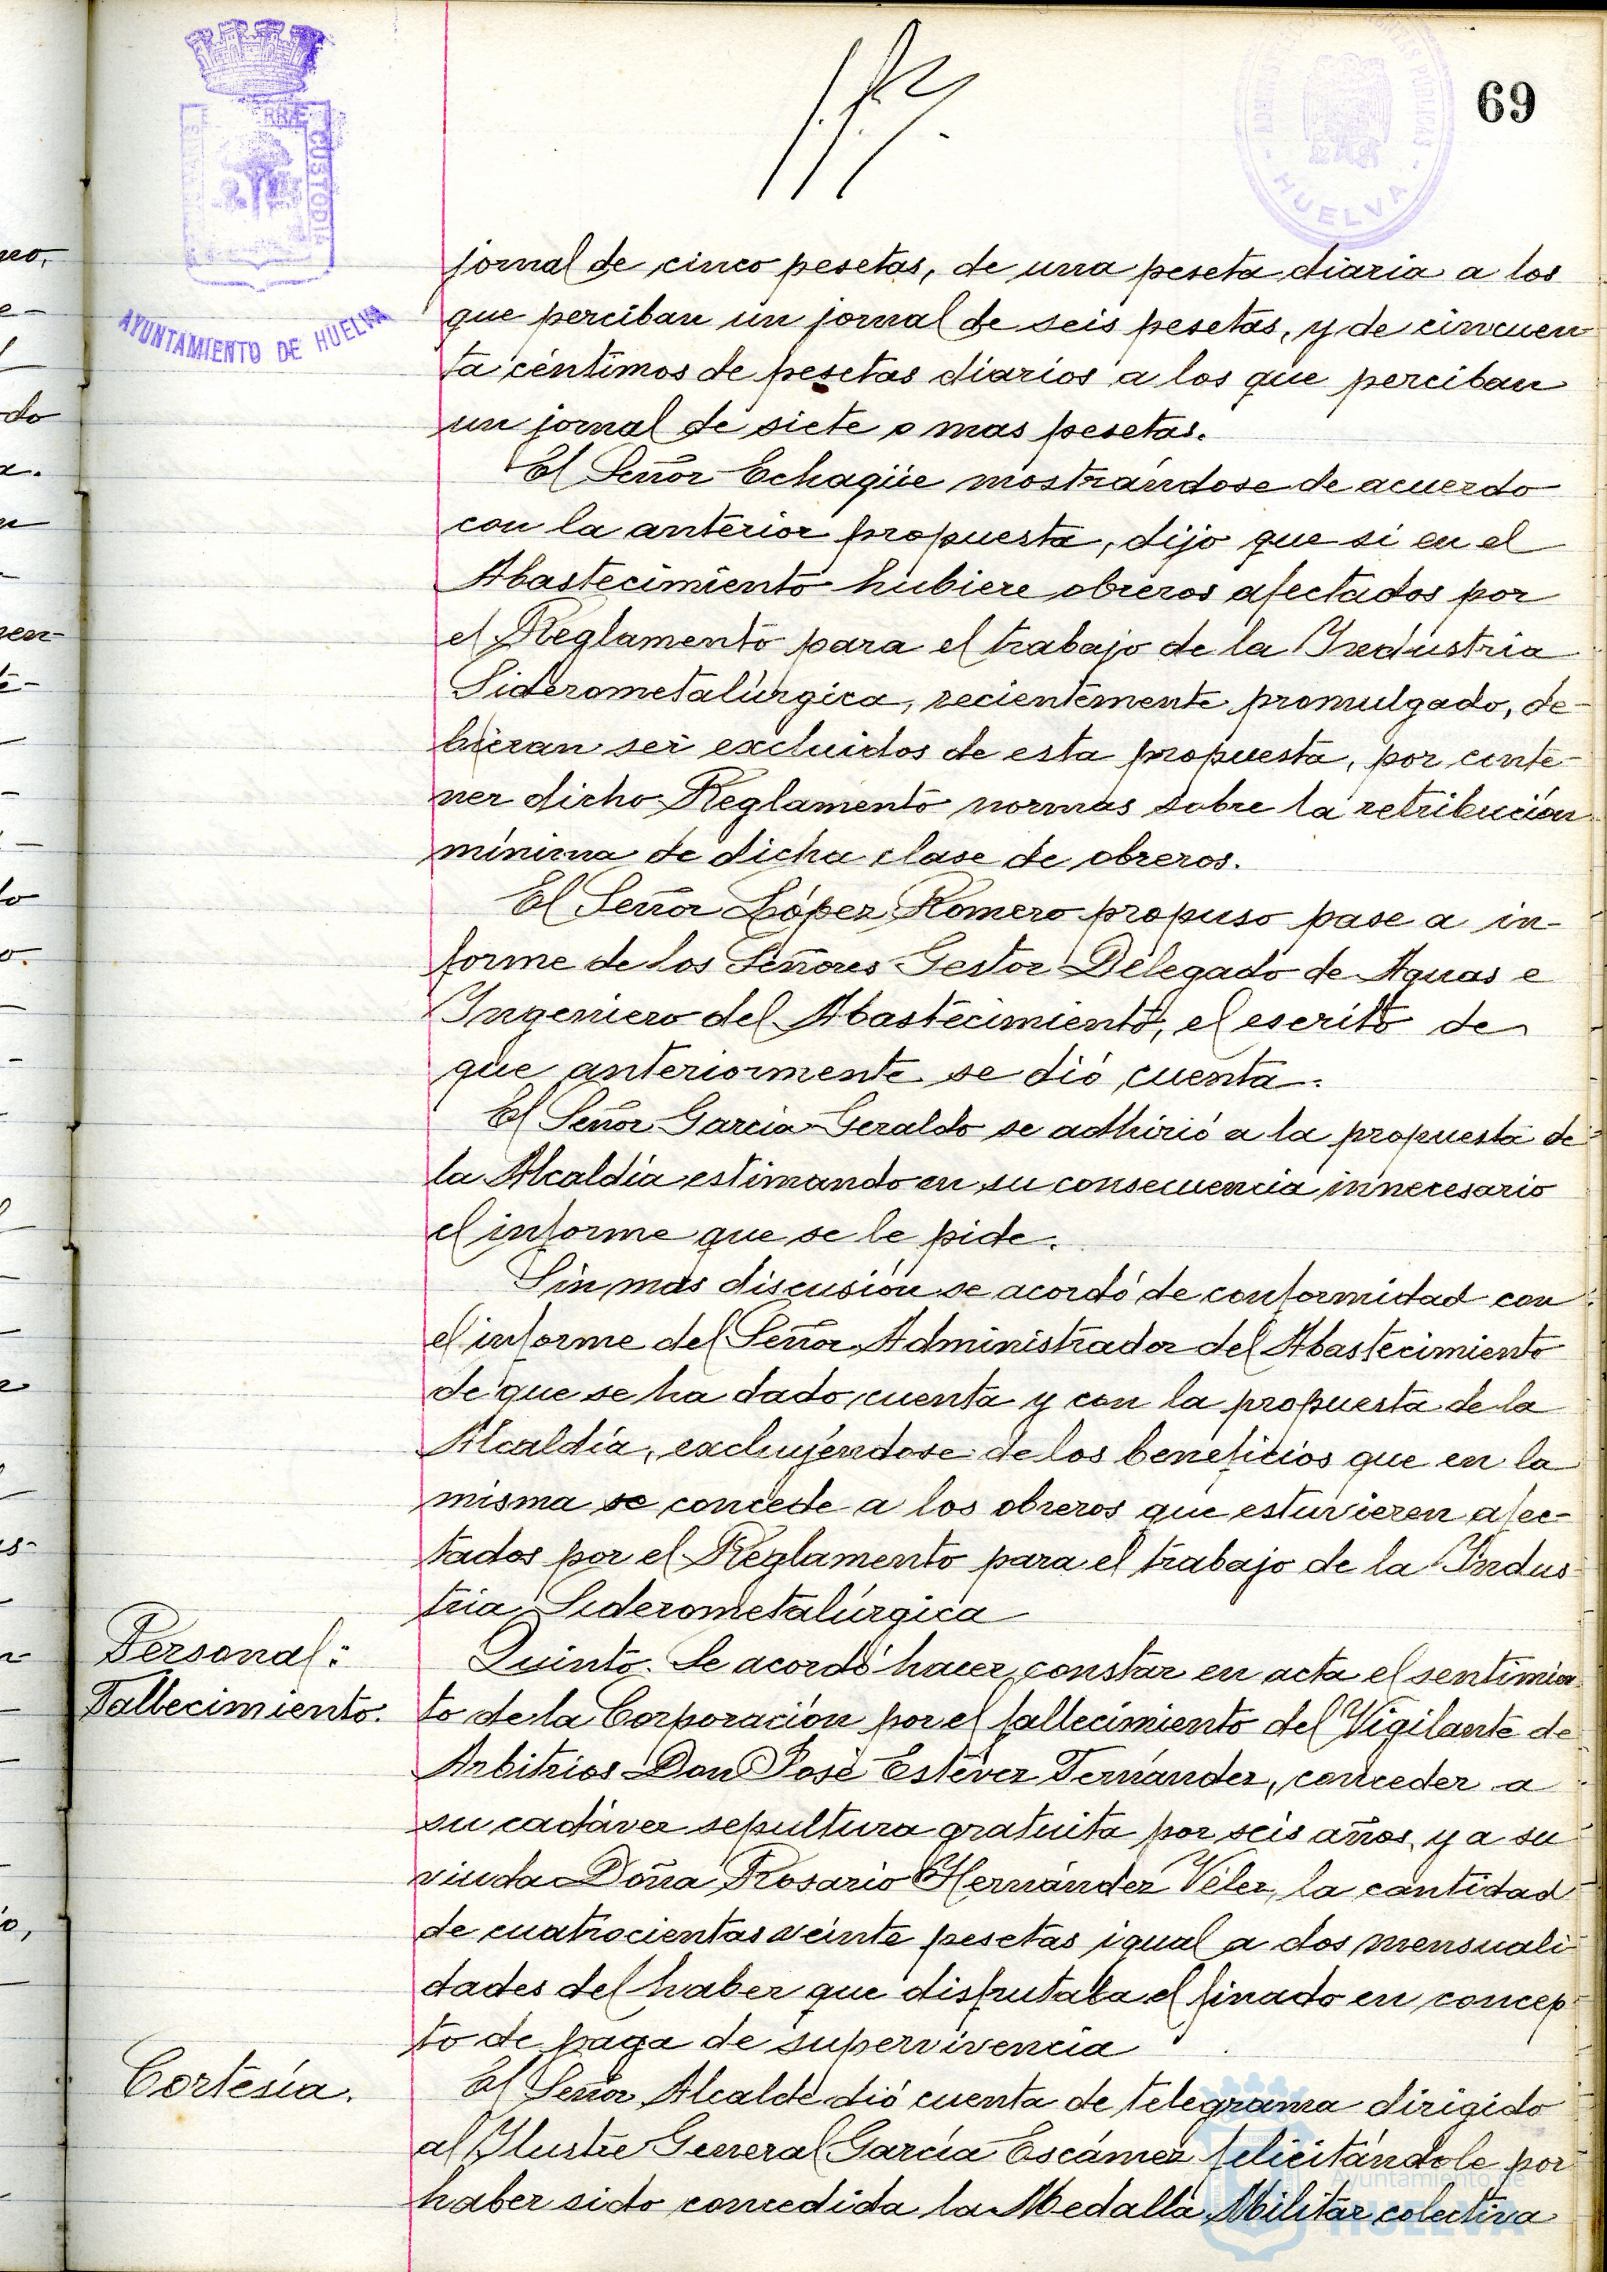 69
AYUNTAMIENTO DE HUELVA
CUSTODIA
HUELVA
jornal de cinco pesetas, de una peseta diaria a los
que perciban un jornal de seis pesetas, y de cincuen
ta céntimos de pesetas diarios a los que perciban
un jornal de siete o mas pesetas.
El Señor Echagüe mostrándose de acuerdo
con la anterior propuesta, dijo que si en el
Abastecimiento hubiere obreros afectados por
el Reglamento para el trabajo de la Industria
Siderometalúrgica, recientemente promulgado, de-
bieran ser excluidos de esta propuesta, por conte-
ner dicho Reglamento normas sobre la retribución
mínima de dicha clase de obreros.
El Señor López Romero propuso pase a in-
forme de los Señores Gestor Delegado de Aguas e
Ingeniero del Abastecimiento, el escrito de
que anteriormente se dió cuenta.
El Señor Garcia Geraldo se adhirió a la propuesta de
la Alcaldía estimando en su consecuencia innecesario
el informe que se le pide.
Sin mas discusión se acordó de conformidad con
el informe del Señor Administrador del Abastecimiento
de que se ha dado cuenta y con la propuesta de la
Alcaldía, excluyéndose de los beneficios que en la
misma se concede a los obreros que estuvieren afec-
tados por el Reglamento para el trabajo de la Indus
tria Siderometalúrgica
Personal:
Fallecimiento.
Quinto. Se acordó hacer constar en acta el sentimien
to de la Corporación por el fallecimiento del Vigilante de
Arbitrios Don José Estévez Fernández, conceder a
su cadáver sepultura gratuita por seis años, y a su
viuda Doña Rosario Hernández Vélez, la cantidad
de cuatrocientas veinte pesetas igual a dos mensuali
dades del haber que disfrutaba el finado en concep
to de paga de supervivencia
Cortesía.
El Señor Alcalde dió cuenta de telegrama dirigido
al Ilustre General García Escámez felicitándole por
haber sido concedida la Medalla Militar colectiva
Ayuntamiento de
HUELVA